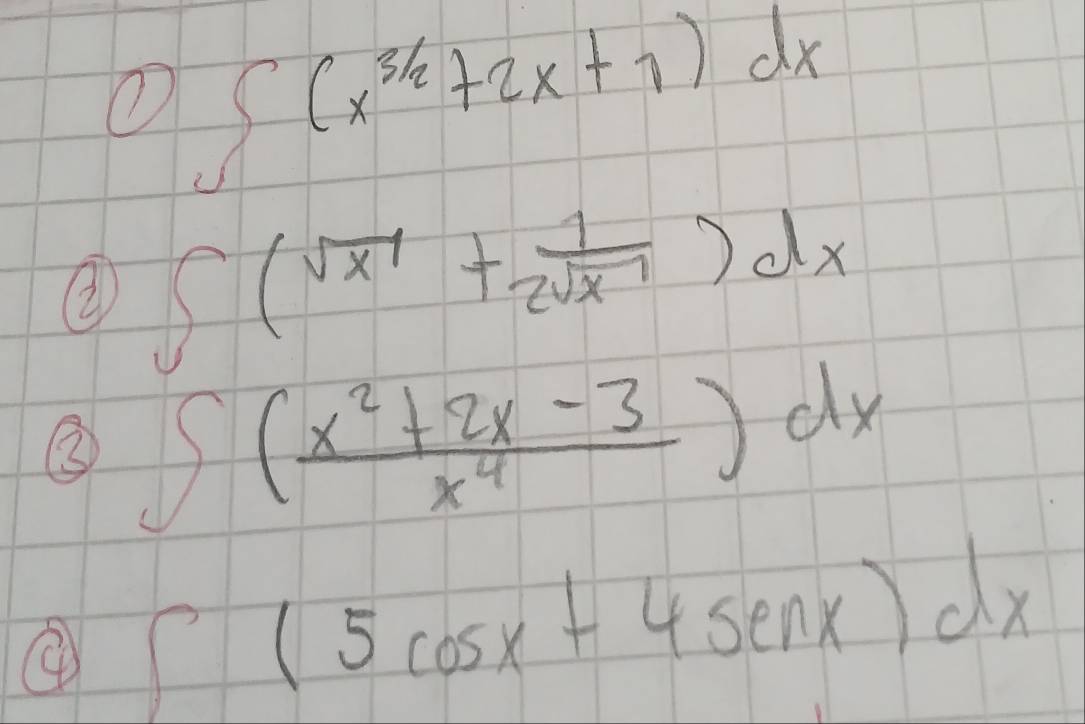 ① ∫ (x^{3/2} + 2x + 1) dx
② ∫ (√x + \frac{1}{2√x}) dx
③ ∫ (\frac{x^2 + 2x - 3}{x^4}) dx
④ ∫ (5 cosx + 4 senx) dx